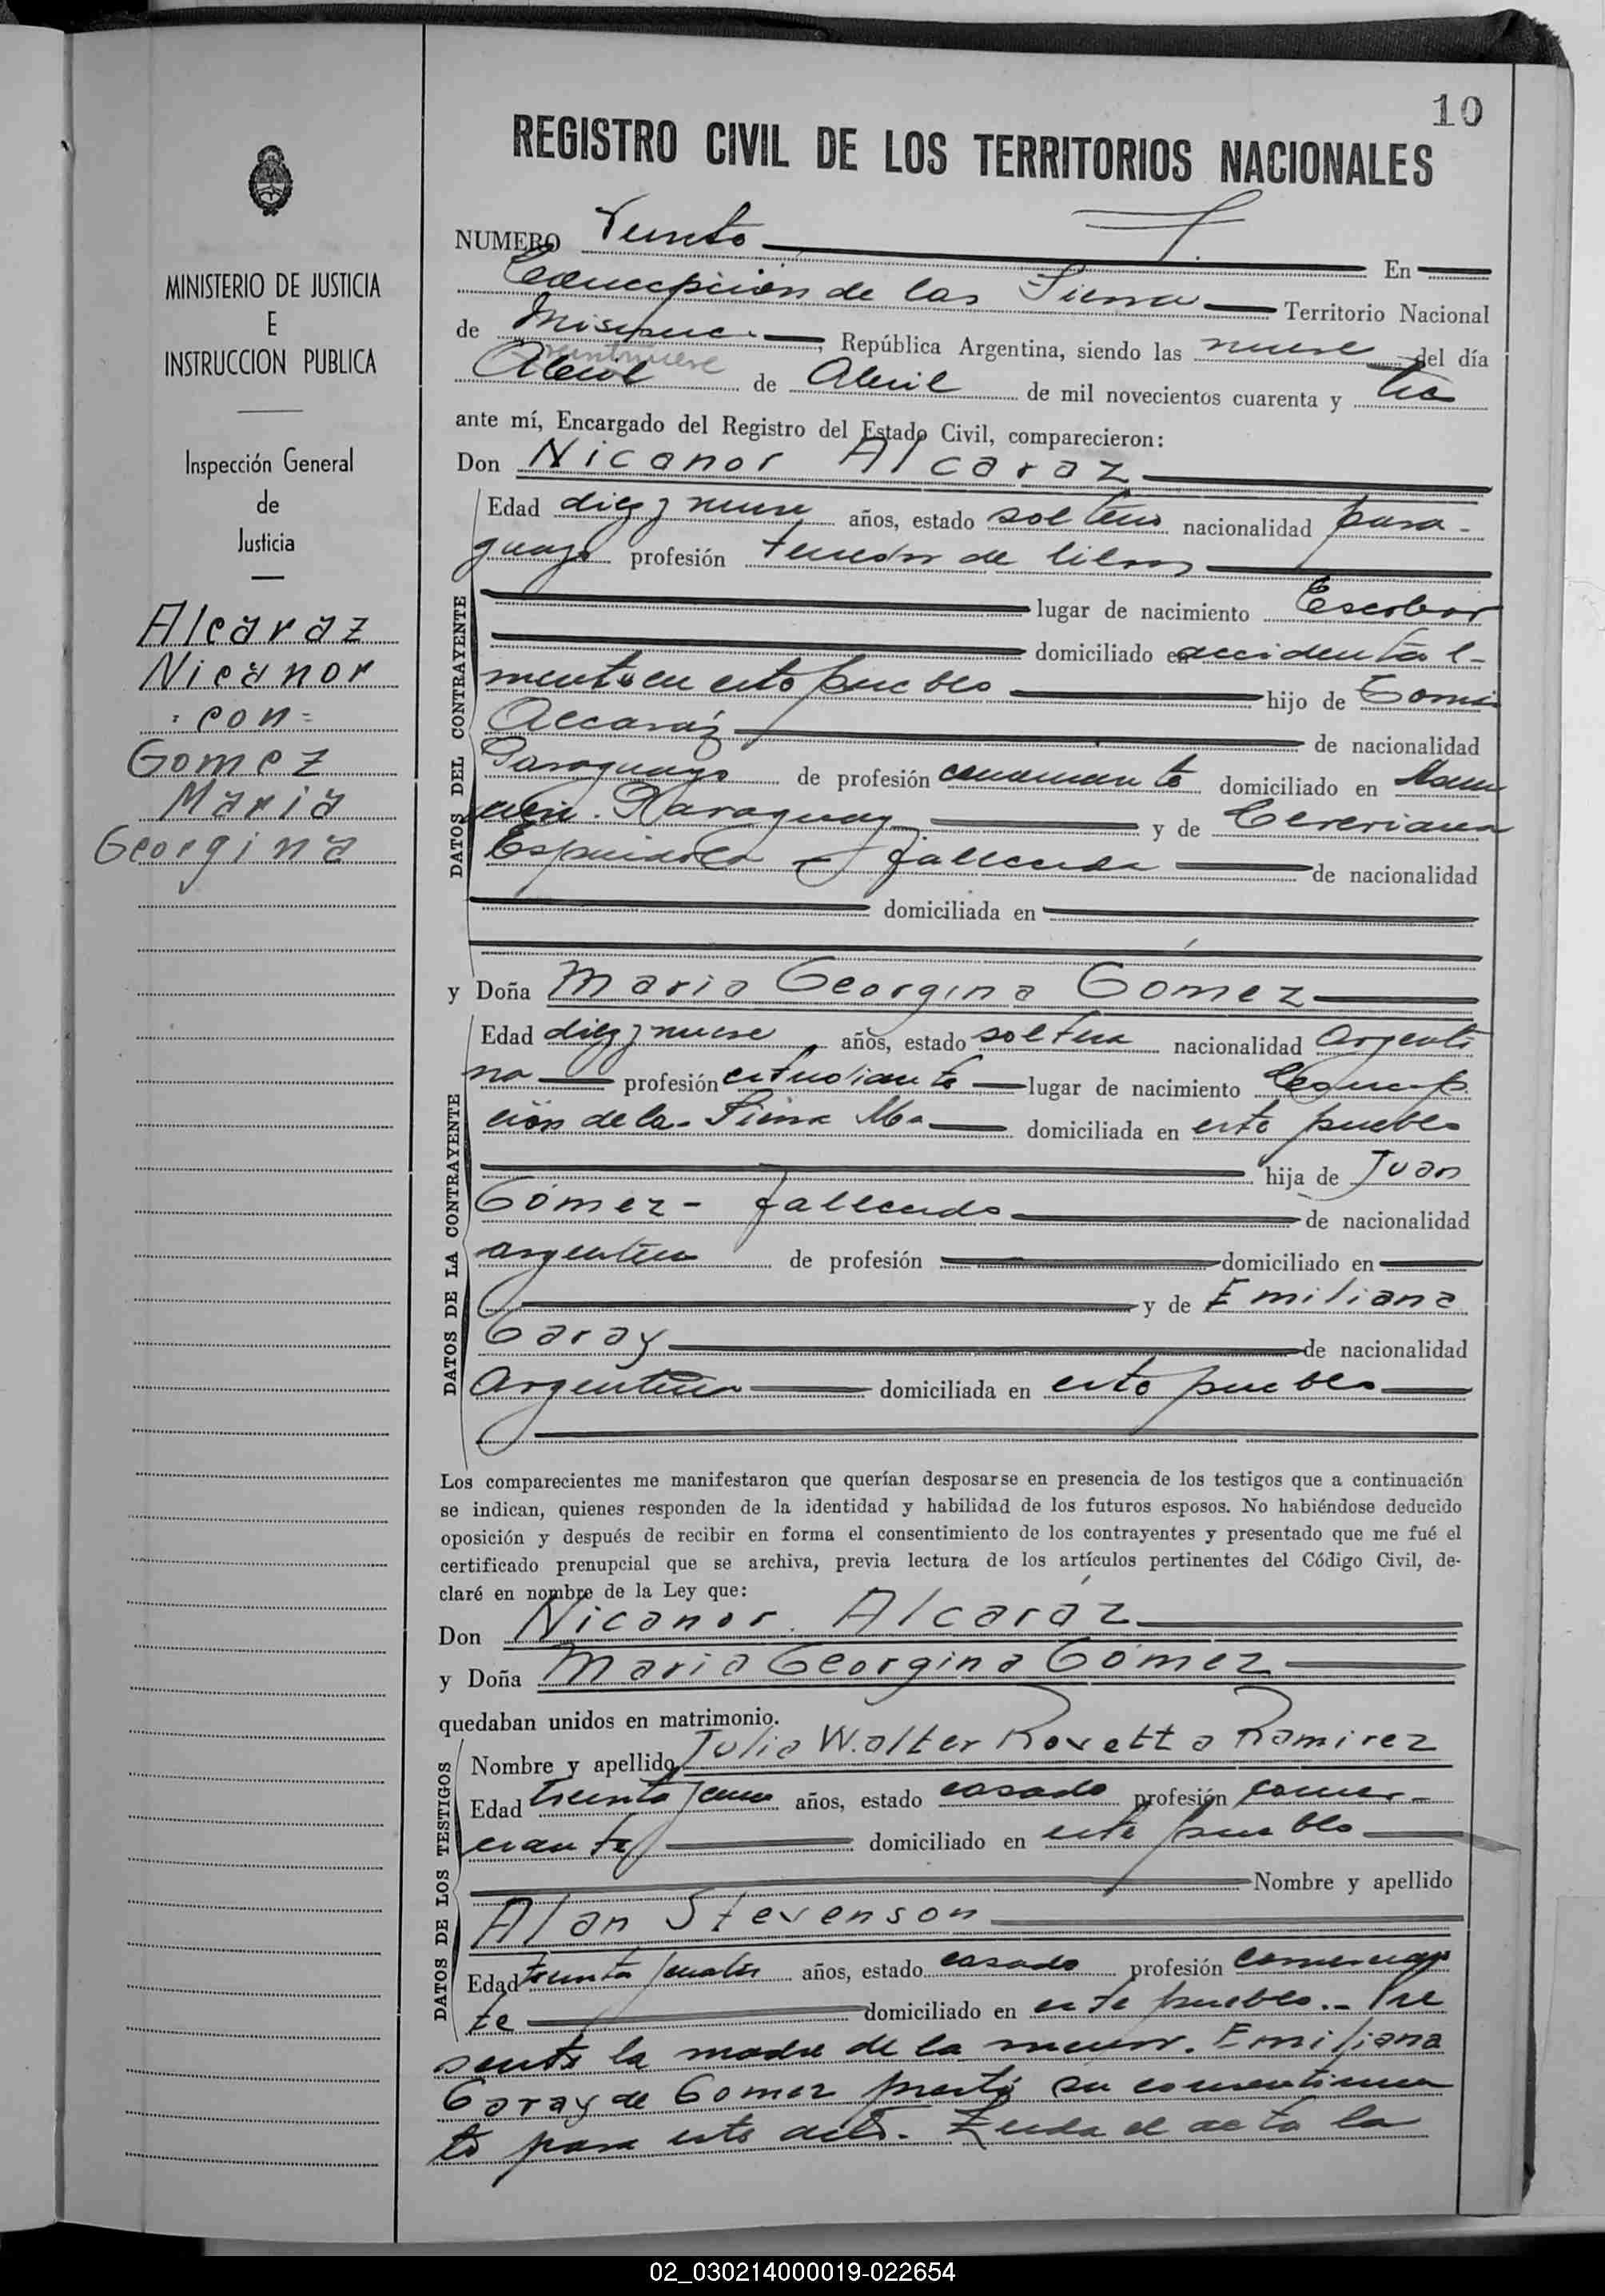 10
REGISTRO CIVIL DE LOS TERRITORIOS NACIONALES
MINISTERIO DE JUSTICIA
E
INSTRUCCION PUBLICA
Inspección General
de
Justicia
Alcaraz
Nicanor
: con =
Gomez
Maria
Georgina
NUMERO Veinte En
Concepción de las Sierra Territorio Nacional
de Misiones, República Argentina, siendo las nueve del día
veintinueve
Abril de Abril de mil novecientos cuarenta y tres
ante mí, Encargado del Registro del Estado Civil, comparecieron:
Don Nicanor Alcaraz
Edad diez y nueve años, estado soltero nacionalidad para-
guayo profesión tenedor de libros
lugar de nacimiento Escobar
domiciliado en accidental-
mente en este pueblo hijo de
Alcaráz de nacionalidad
Paraguayo de profesión comerciante domiciliado en
Paraguay y de
Espindola - fallecida de nacionalidad
domiciliada en
y Doña Maria Georgina Gómez
Edad diez y nueve años, estado soltera nacionalidad Argenti
na profesión estudiante lugar de nacimiento Concep
ción de la Sierra Mnes domiciliada en este pueblo
hija de Juan
Gómez - fallecido de nacionalidad
argentino de profesión domiciliado en
y de Emiliana
Garay de nacionalidad
Argentina domiciliada en este pueblo
Los comparecientes me manifestaron que querían desposarse en presencia de los testigos que a continuación
se indican, quienes responden de la identidad y habilidad de los futuros esposos. No habiéndose deducido
oposición y después de recibir en forma el consentimiento de los contrayentes y presentado que me fué el
certificado prenupcial que se archiva, previa lectura de los artículos pertinentes del Código Civil, de-
claré en nombre de la Ley que:
Don Nicanor Alcaráz
y Doña Maria Georgina Gómez
quedaban unidos en matrimonio.
Nombre y apellido Julio Walter Rovetta Ramirez
Edad treinta y cinco años, estado casado profesión comer-
ciante domiciliado en este pueblo
Nombre y apellido
Alan Stevenson
Edad treinta y cuatro años, estado casado profesión comercian
te domiciliado en este pueblo.- Pre
sente la madre de la menor. Emiliana
Garay de Gomez prestó su consentimien
to para este acto. Leida el acta la
DATOS DEL CONTRAYENTE
DATOS DE LA CONTRAYENTE
DATOS DE LOS TESTIGOS
02_030214000019-022654